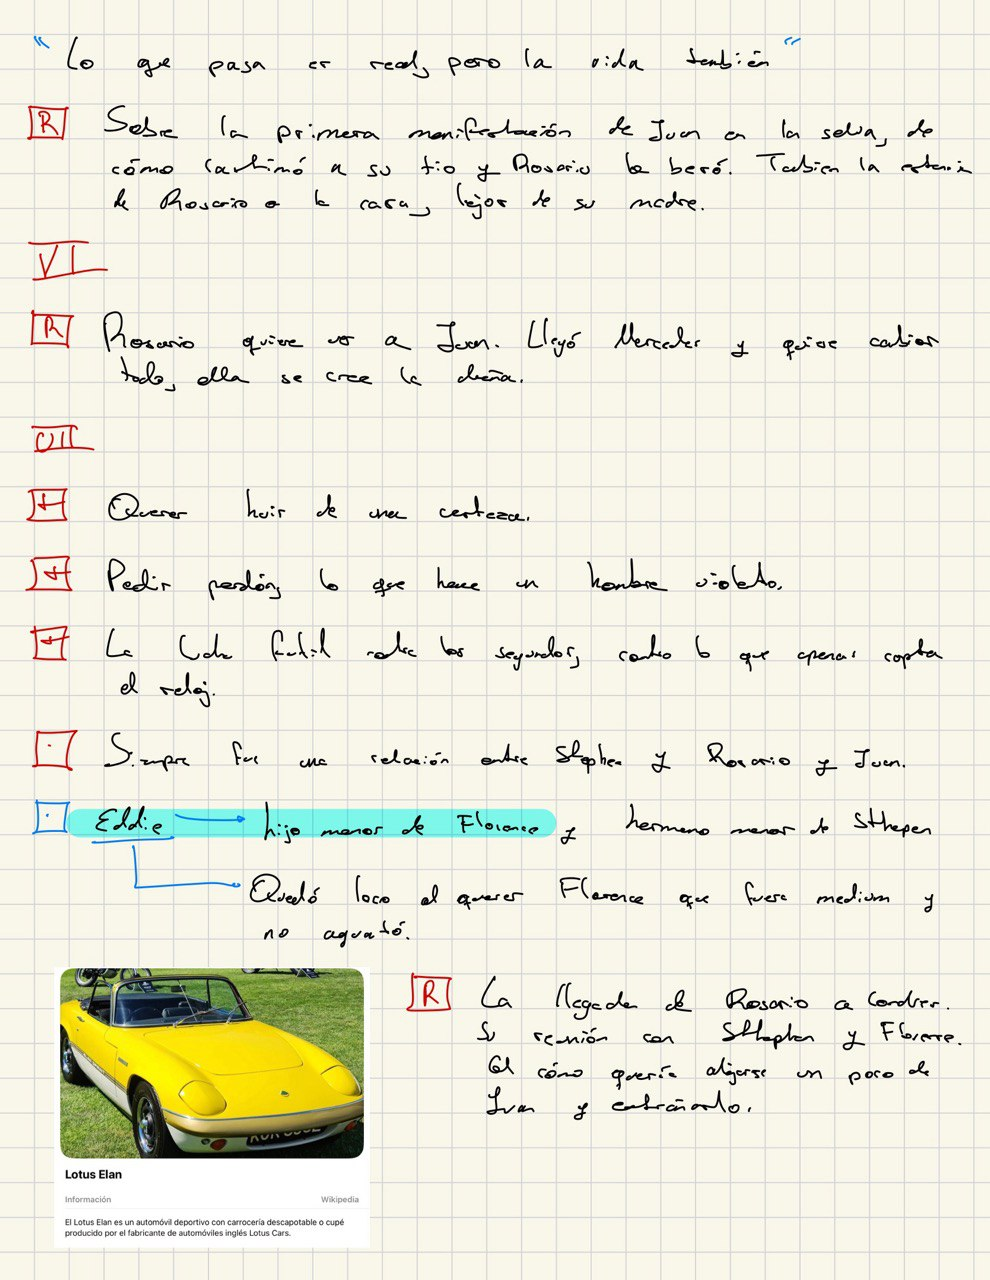 "Lo que pasa es real, pero la vida también"
R Sobre la primera manifestación de Juan en la selva, de
cómo lastimó a su tío y Rosario lo besó. Tabien la
de Rosario a la casa, lejos de su madre.
VI
R Rosario quiere ver a Juan. Llegó Mercedes y quiere cambiar
todo, ella se cree la dueña.
VII
Querer huir de una certeza.
Pedir perdón, lo que hace un hombre violento.
La lucha fútil contra los segundos, contra lo que apenas capta
el reloj.
Siempre fue una relación entre Stephen y Rosario y Juan.
Eddie hijo menor de Florence y hermano menor de Sthepen
Quedó loco al querer Florence que fuera medium y
no aguantó.
R La llegada de Rosario a Londres.
Su reunión con Sthephen y Florence.
El cómo quería alejarse un poco de
Juan y extrañarlo.
Lotus Elan
Información Wikipedia
El Lotus Elan es un automóvil deportivo con carrocería descapotable o cupé
producido por el fabricante de automóviles inglés Lotus Cars.